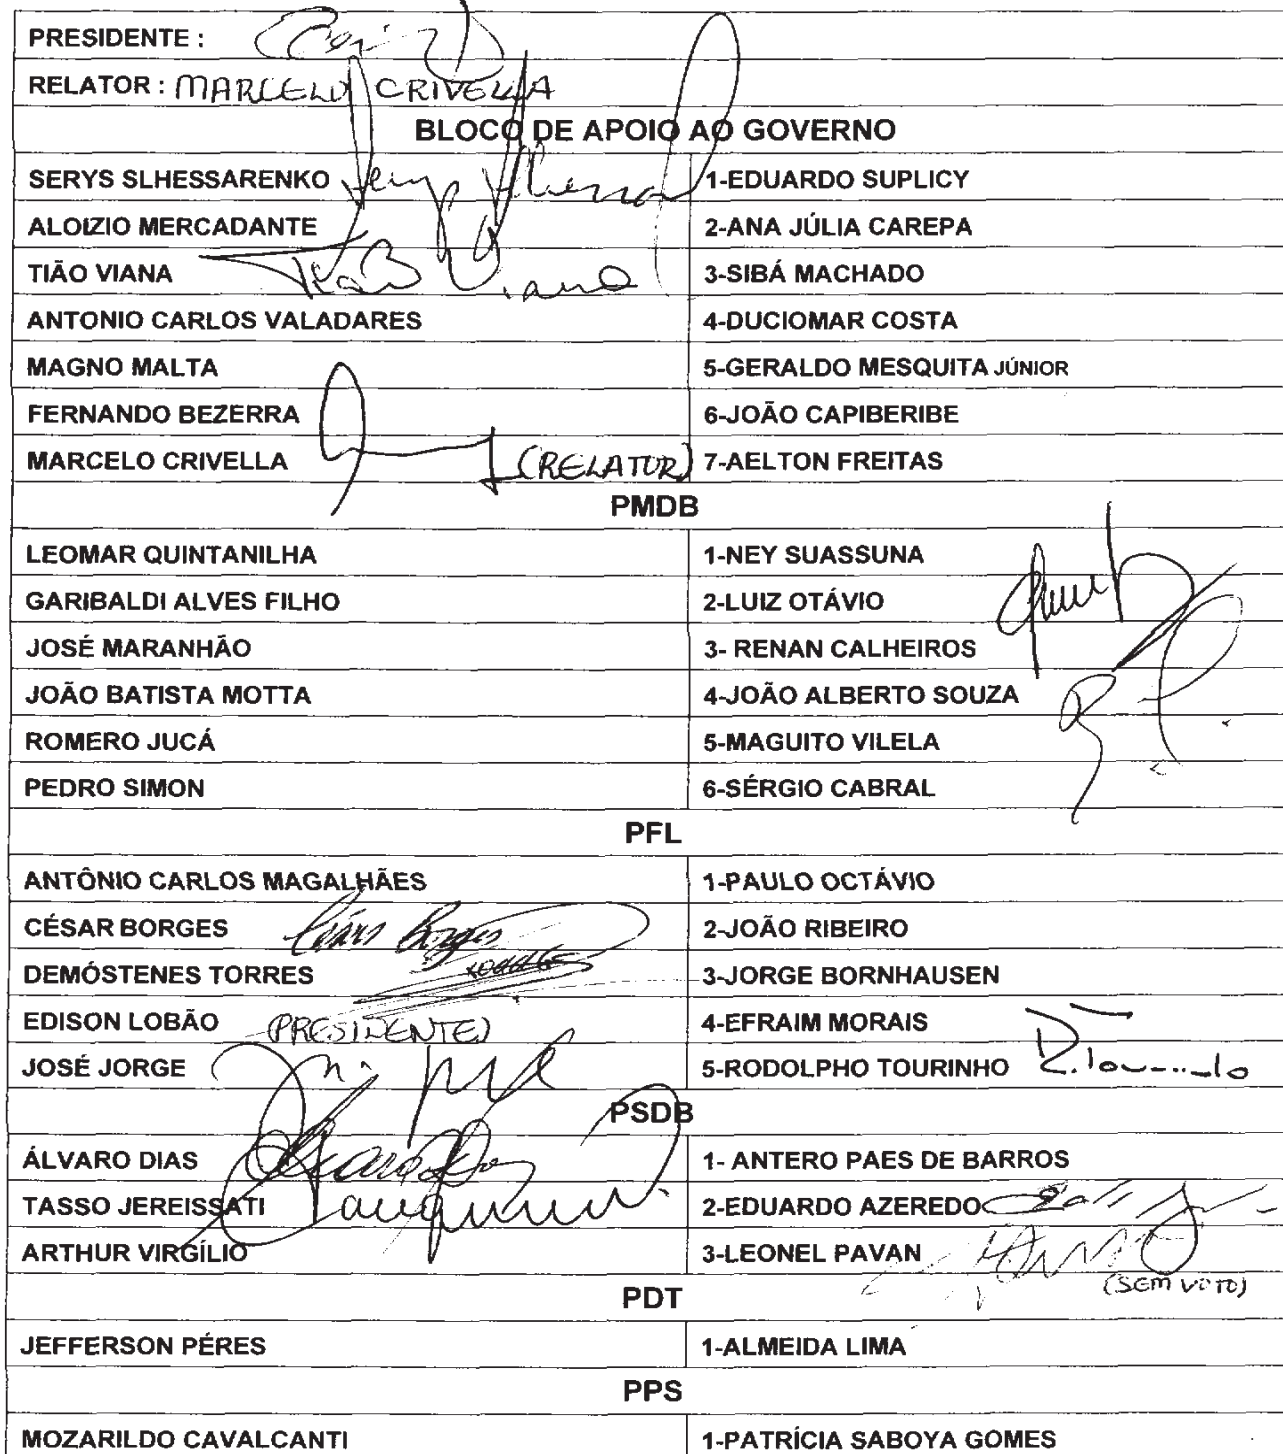 PRESIDENTE :
RELATOR : MARCELO CRIVELLA
BLOCO DE APOIO AO GOVERNO
SERYS SLHESSARENKO Serys Slhessarenko 1-EDUARDO SUPLICY
ALOIZIO MERCADANTE 2-ANA JÚLIA CAREPA
TIÃO VIANA Tião Viana 3-SIBÁ MACHADO
ANTONIO CARLOS VALADARES 4-DUCIOMAR COSTA
MAGNO MALTA 5-GERALDO MESQUITA JÚNIOR
FERNANDO BEZERRA 6-JOÃO CAPIBERIBE
MARCELO CRIVELLA (RELATOR) 7-AELTON FREITAS
PMDB
LEOMAR QUINTANILHA 1-NEY SUASSUNA
GARIBALDI ALVES FILHO 2-LUIZ OTÁVIO
JOSÉ MARANHÃO 3- RENAN CALHEIROS
JOÃO BATISTA MOTTA 4-JOÃO ALBERTO SOUZA
ROMERO JUCÁ 5-MAGUITO VILELA
PEDRO SIMON 6-SÉRGIO CABRAL
PFL
ANTÔNIO CARLOS MAGALHÃES 1-PAULO OCTÁVIO
CÉSAR BORGES César Borges 2-JOÃO RIBEIRO
DEMÓSTENES TORRES 3-JORGE BORNHAUSEN
EDISON LOBÃO (PRESIDENTE) 4-EFRAIM MORAIS
JOSÉ JORGE 5-RODOLPHO TOURINHO R. Tourinho
PSDB
ÁLVARO DIAS Alvaro Dias 1- ANTERO PAES DE BARROS
TASSO JEREISSATI 2-EDUARDO AZEREDO
ARTHUR VIRGÍLIO 3-LEONEL PAVAN
(SEM VOTO)
PDT
JEFFERSON PÉRES 1-ALMEIDA LIMA
PPS
MOZARILDO CAVALCANTI 1-PATRÍCIA SABOYA GOMES